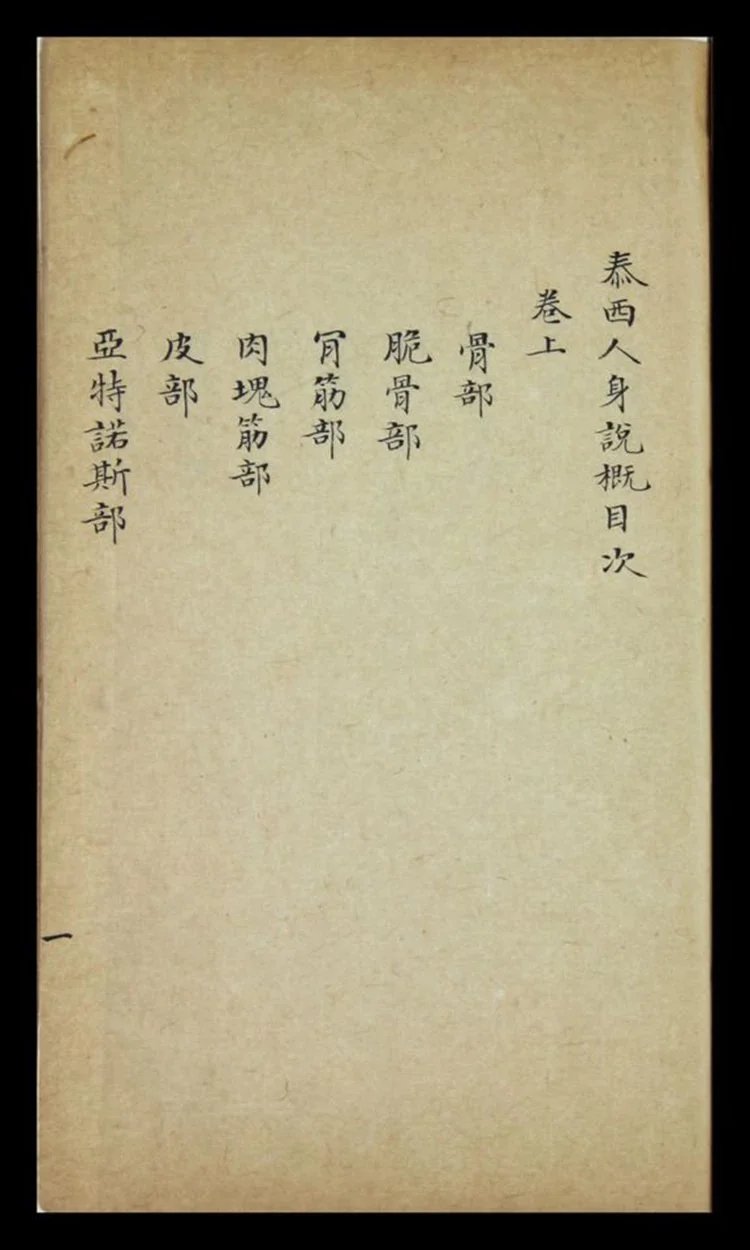 泰西人身說概目次
卷上
骨部
脆骨部
肎筋部
肉塊筋部
皮部
亞特諾斯部
一